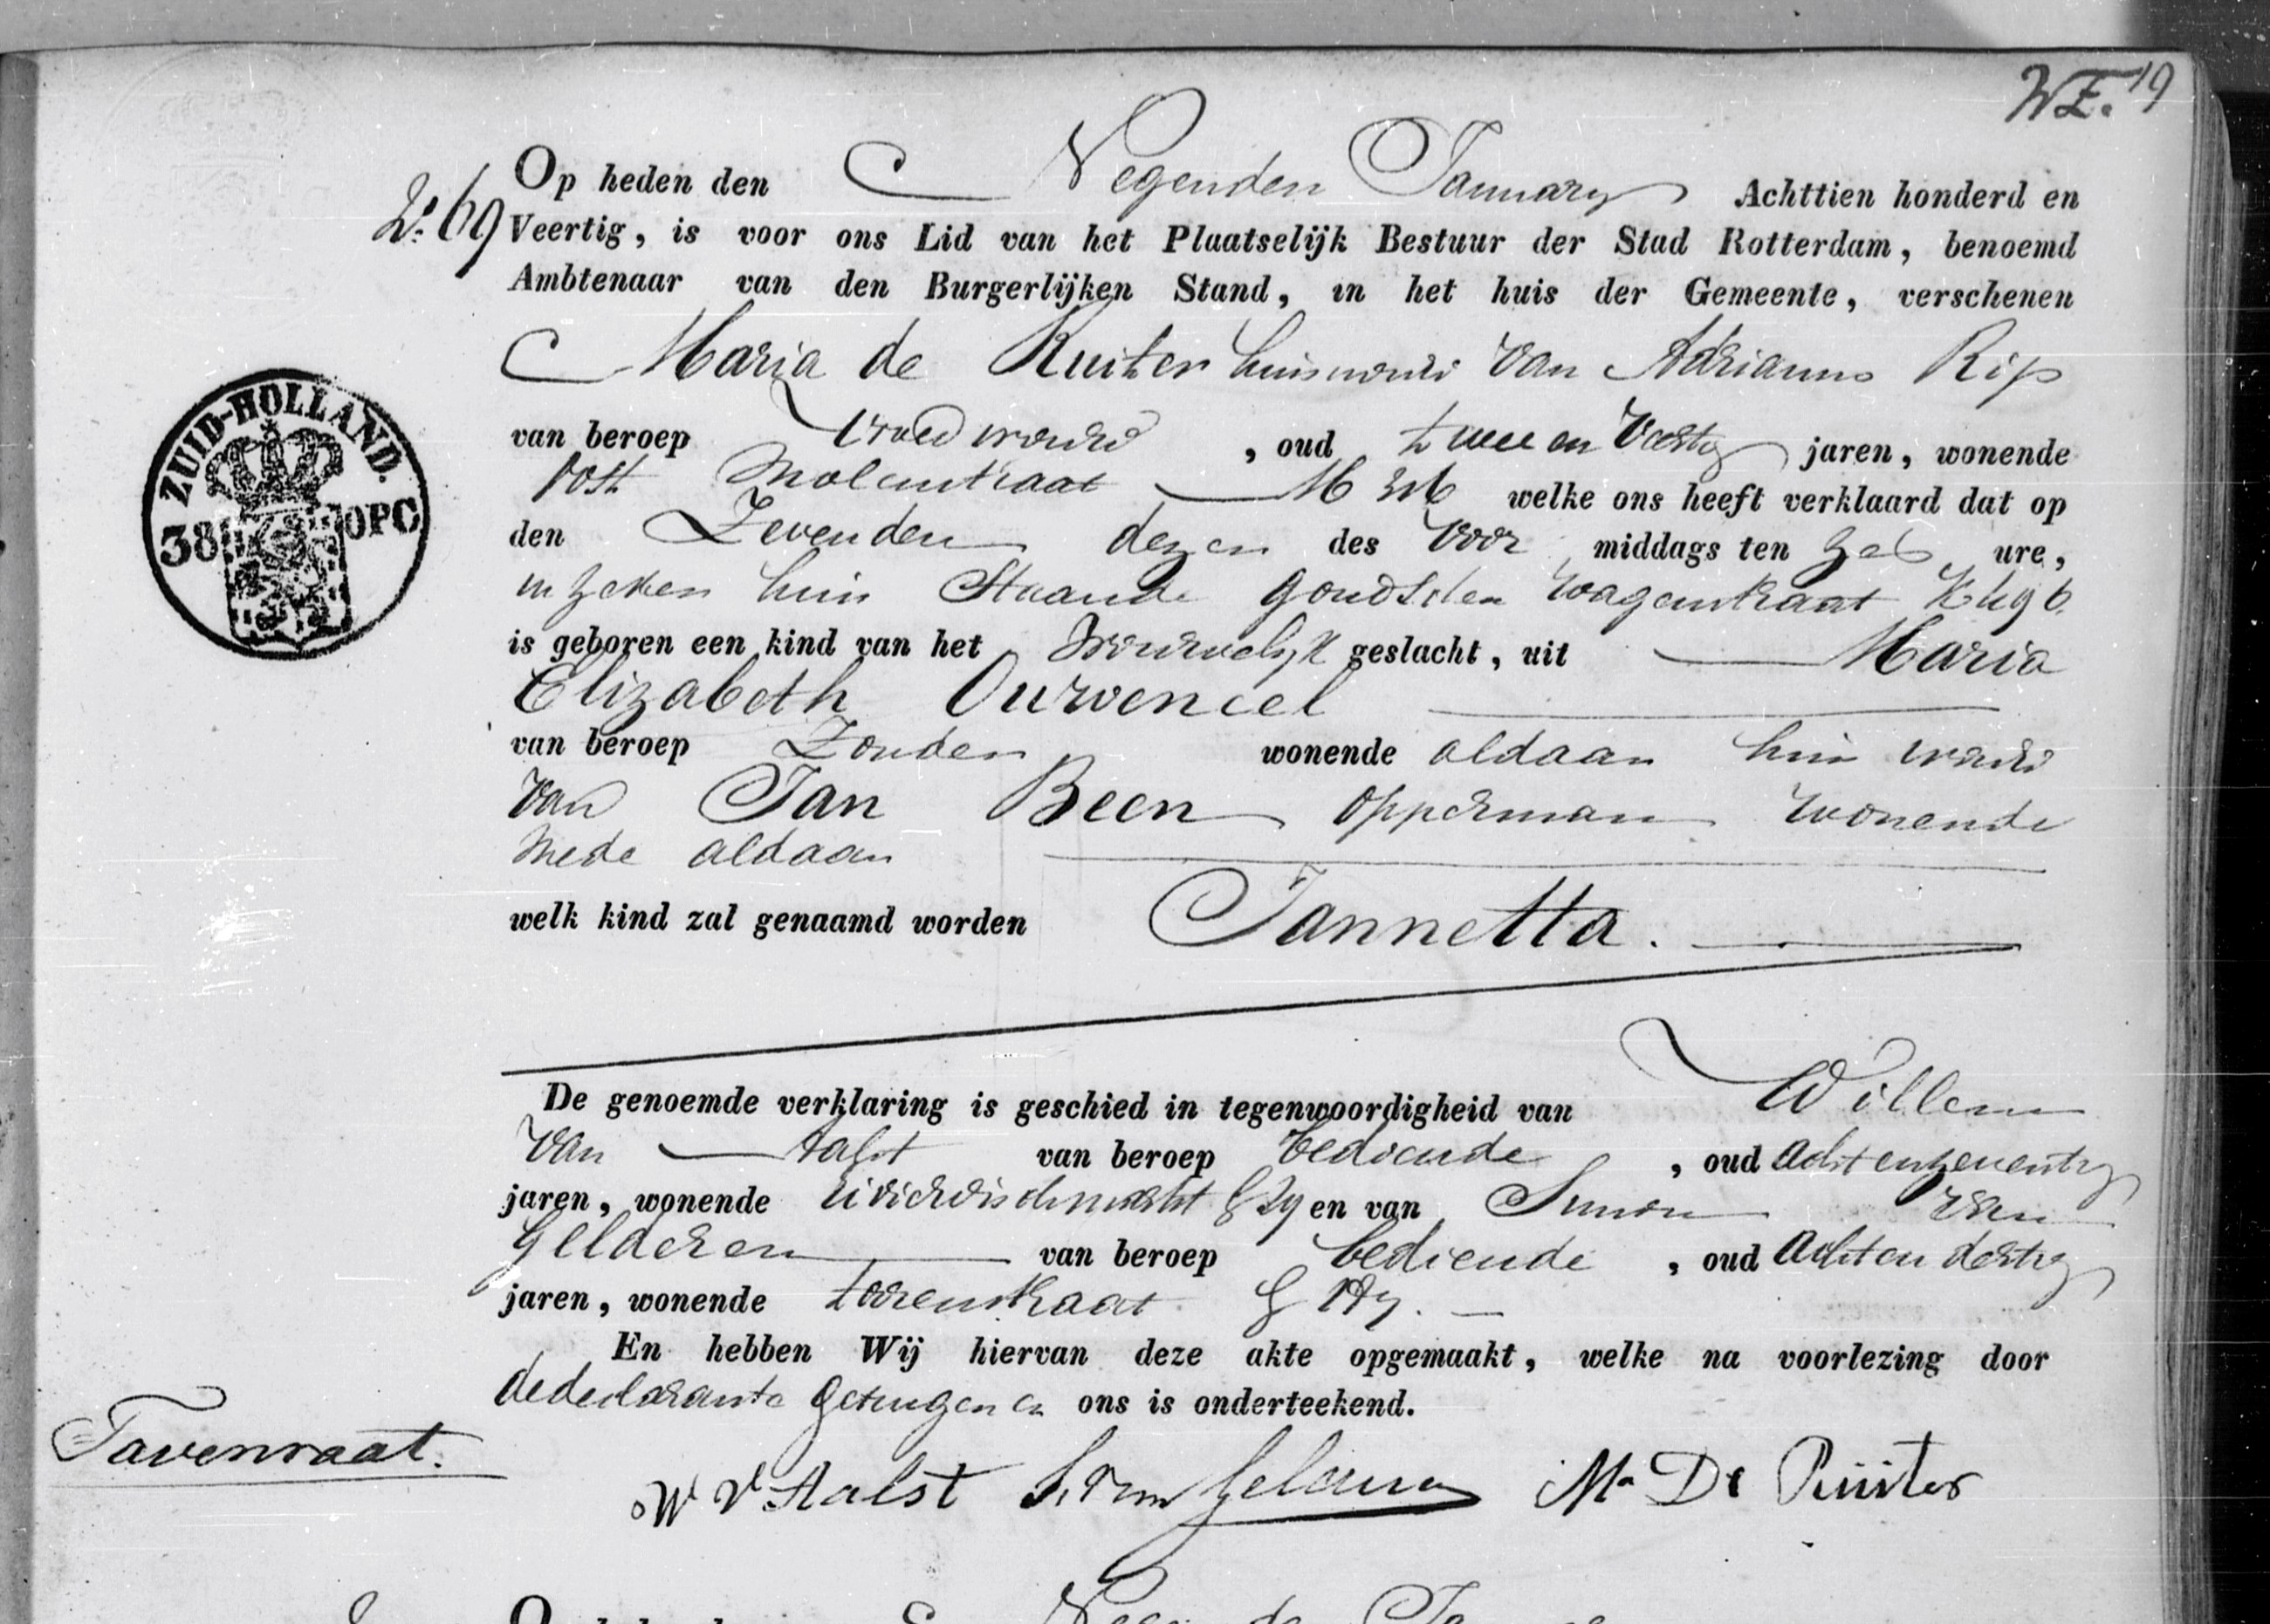 WE. 19
Op heden den Negenden January Achttien honderd en
N: 69 Veertig, is voor ons Lid van het Plaatselijk Bestuur der Stad Rotterdam, benoemd
Ambtenaar van den Burgerlijken Stand, in het huis der Gemeente, verschenen
Maria de Ruiter huisvrouw van Adrianus Rip
van beroep vroedvrouw, oud twee en Veertig jaren, wonende
Molenstraat welke ons heeft verklaard dat op
den Zevenden dezer des Voor middags ten zes ure,
in zeker huis staande Goudschen Wagenstraat
is geboren een kind van het Vrouwelyk geslacht, uit Maria
Elizabeth Ourvencel
van beroep Zonder wonende aldaar huisvrouw
van Jan Been opperman wonende
mede aldaar
welk kind zal genaamd worden Jannetta.
De genoemde verklaring is geschied in tegenwoordigheid van Willem
van Aalst van beroep bediende, oud acht en zeventig
jaren, wonende en van Simon van
Gelderen van beroep bediende, oud acht en dertig
jaren, wonende torenstraat
En hebben Wij hiervan deze akte opgemaakt, welke na voorlezing door
de declarante getuigen en ons is onderteekend.
Tavenraat.
W V Aalst S. van Gelderen Ma De Ruiter
ZUID-HOLLAND.
38 OPC